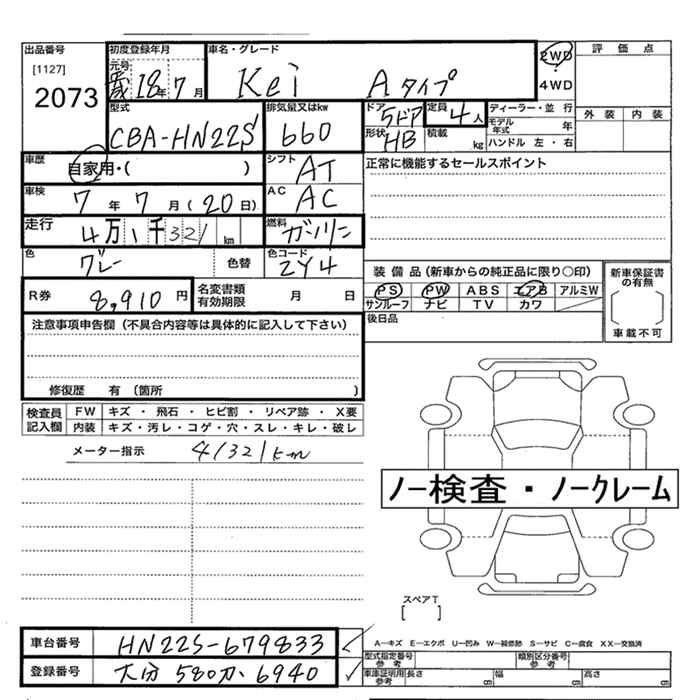 出品番号
[1127]
2073
初度登録年月
元号
18年 7月
車名・グレード
Kei Aタイプ
2WD
・
4WD
評価点
外装 内装
型式
CBA-HN22S
排気量又はkw
660
ドア
5ドア
形状
HB
定員
4人
積載
kg
ディーラー・並行
モデル年式 年
ハンドル 左・右
車歴
自家用・( )
シフト
AT
正常に機能するセールスポイント
車検
7年 7月 (20日)
AC
AC
走行
4万1千321km
燃料
ガソリン
色
グレー
色替
色コード
ZY4
装備品(新車からの純正品に限り○印)
PS PW ABS エアB アルミW
サンルーフ ナビ TV カワ
新車保証書の有無
車載不可
R券 8,910円
名変書類有効期限 月 日
後日品
注意事項申告欄(不具合内容等は具体的に記入して下さい)
修復歴 有(箇所 )
検査員記入欄
FW キズ・飛石・ヒビ割・リペア跡・X要
内装 キズ・汚レ・コゲ・穴・スレ・キレ・破レ
メーター指示 41321km
ノー検査・ノークレーム
スペアT
[ ]
車台番号 HN22S-679833
登録番号 大分 580 カ・6940
A―キズ E―エクボ U―凹み W―補修跡 S―サビ C―腐食 XX―交換済
型式指定番号 参考
類別区分番号 参考
車庫証明用 参考
長さ cm 幅 cm 高さ cm